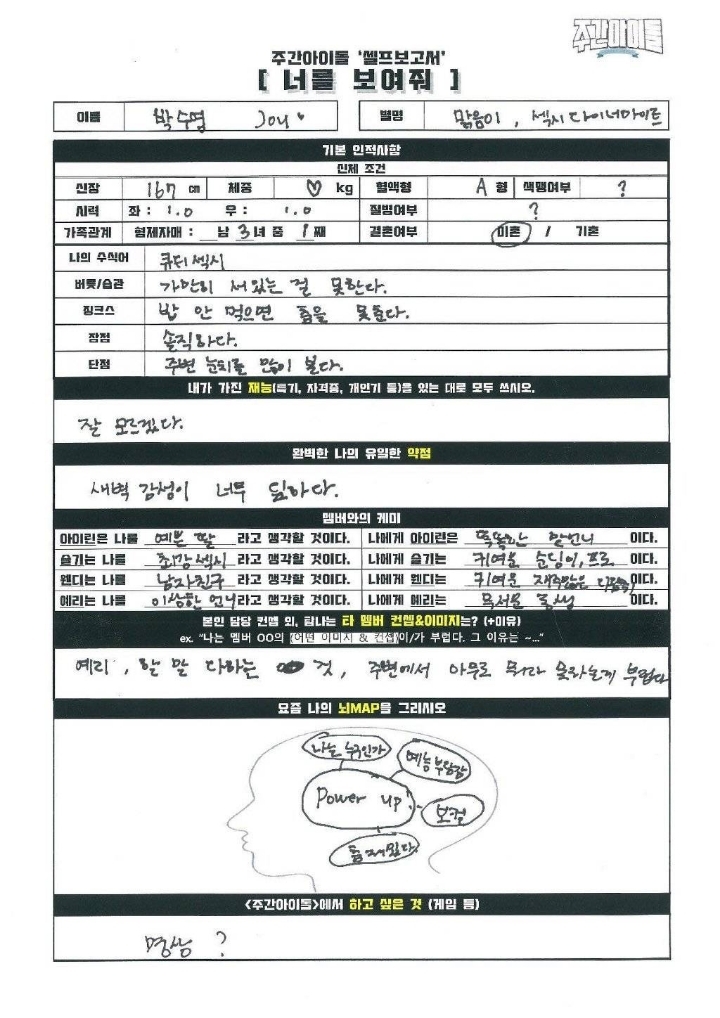 주간아이돌
주간아이돌 '셀프보고서'
[ 너를 보여줘 ]
이름 박수영 Joy♥ 별명 맑음이, 섹시다이너마이트
기본 인적사항
신체 조건
신장 167 cm 체중 ♡ kg 혈액형 A 형 색맹여부 ?
시력 좌 : 1.0 우 : 1.0 질병여부 ?
가족관계 형제자매 : 남 3 녀 중 1 째 결혼여부 미혼 / 기혼
나의 수식어 큐티섹시
버릇/습관 가만히 서있는 걸 못한다.
징크스 밥 안 먹으면 춤을 못춘다.
장점 솔직하다.
단점 주변 눈치를 많이 본다.
내가 가진 재능(특기, 자격증, 개인기 등)을 있는 대로 모두 쓰시오.
잘 모르겠다.
완벽한 나의 유일한 약점
새벽 감성이 너무 심하다.
멤버와의 케미
아이린은 나를 예쁜 딸 라고 생각할 것이다. 나에게 아이린은 똑똑한 맏언니 이다.
슬기는 나를 최강섹시 라고 생각할 것이다. 나에게 슬기는 귀여운 순딩이, 프로 이다.
웬디는 나를 남자친구 라고 생각할 것이다. 나에게 웬디는 귀여운 재주많은 이다.
예리는 나를 이상한 언니 라고 생각할 것이다. 나에게 예리는 무서운 동생 이다.
본인 담당 컨셉 외, 탐나는 타 멤버 컨셉&이미지는? (+이유)
ex. "나는 멤버 OO의 (어떤 이미지 & 컨셉)이/가 부럽다. 그 이유는 ~..."
예리, 할 말 다하는 것, 주변에서 아무도 뭐라 못하는게 부럽다
요즘 나의 뇌MAP을 그리시오
나는 누구인가
예능 부담감
Power up!
보컬
춤 재밌다.
<주간아이돌>에서 하고 싶은 것 (게임 등)
명상 ?